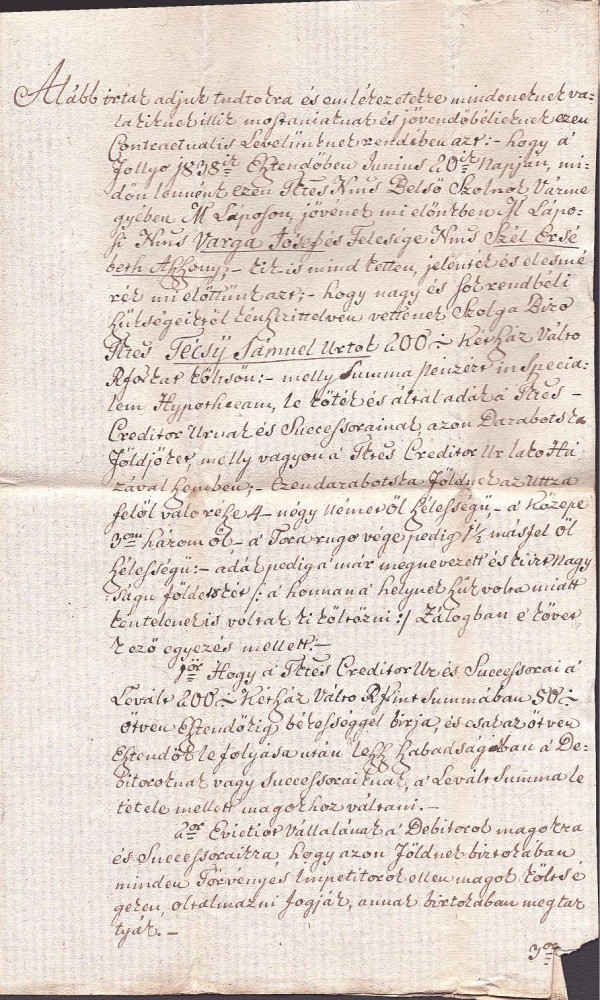 Alább irtak adjuk tudtokra és emlékezetekre mindeneknek va-
lakiknek illik mostaniaknak és jövendőbélieknek ezen
Contractualis Levelünknek rendiben azt:- hogy á
follyo 1838ik Esztendőben Junius 20ik Napján, mi-
dőn lennénk ezen Ttes Nms Belső Szolnok Várme
gyében M Láposon, jövének mi előnkben M Lápo-
si Nms Varga Josef és Felesége Nms Szél Ersé
beth Aszszony,- kik is mind ketten, jelenték és elesmé
rék mi előttünk azt;- hogy nagy és sok rendbéli
szükségeiktől kénszerittetvén vettenek Szolga Biro
Ttes Técsÿ Sámuel Urtol 200 :/: Kétszáz Válto
Rfkat költsön:- melly Summa pénzért in Specia-
lem Hypothecam, le köték és által adák á Ttes -
Creditor Urnak és Successorainak azon Darabotska
földjöket, melly vagyon á Ttes Creditor Ur lako Há
zával szemben;- Ezen darabotska földnek az Uttza
felöl valo része 4- négy Német öl szélességü,- á közepe
3om három öl,- á Tora rugo vége pedig 1½ másfél öl
szélességü:- adák pedig á már megnevezett és kiirt nagy
ságu földetskét /: á honnan á helynek szük volta miatt
kéntelenek is voltak ki költözni :/ Zálogban é követ
kező egyezés mellett:-
1ör Hogy á Ttes Creditor Ur és Successorai á
Levált 200 :/: Kétszáz Válto Rfrint Summában 50 :/:
ötven Esztendőkig békességgel birja, és csak az ötven
Esztendők le folyása után lessz szabadságában á De-
bitoroknak vagy Successoraiknak, á Levált Summa le
tétele mellett magokhoz váltani.-
2or Evictiot Vállalának á Debitorok magokra
és Successoraikra, hogy azon földnek birtokában
minden Törvényes Impetitorok ellen magok költsé
geken, oltalmazni fogják, annak birtokában megtar
tyák.-
3or